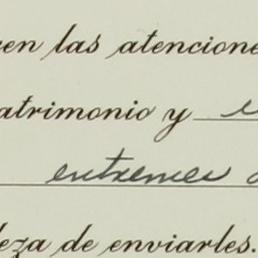 en las atencione
atrimonio y
entremes
eza de enviarles.